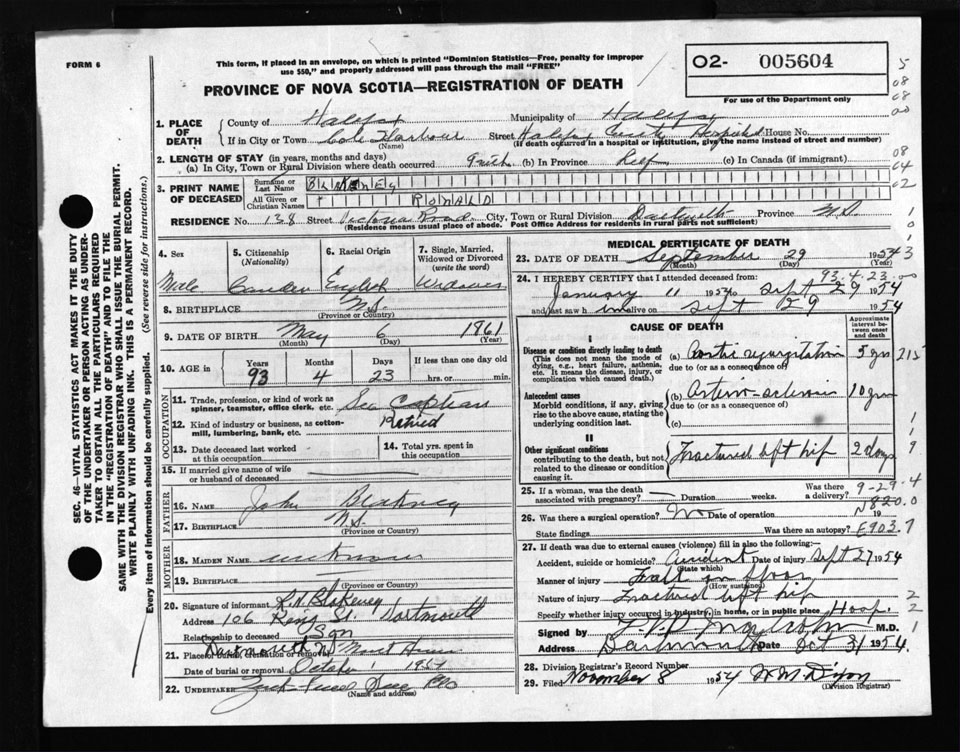 FORM 6
This form, if placed in an envelope, on which is printed "Dominion Statistics—Free, penalty for improper
use $50," and properly addressed will pass through the mail "FREE"
PROVINCE OF NOVA SCOTIA—REGISTRATION OF DEATH
O2- 005604
For use of the Department only
1. PLACE OF DEATH
County of Halifax Municipality of Halifax
If in City or Town Cole Harbour Street Halifax County Hospital House No.
(Name) (If death occurred in a hospital or institution, give the name instead of street and number)
2. LENGTH OF STAY (in years, months and days)
(a) In City, Town or Rural Division where death occurred (b) In Province Life (c) In Canada (if immigrant)
3. PRINT NAME OF DECEASED
Surname or Last Name BLAKENEY
All Given or Christian Names RONALD
RESIDENCE No. 138 Street Victoria Road City, Town or Rural Division Dartmouth Province N.S.
(Residence means usual place of abode. Post Office Address for residents in rural parts not sufficient)
4. Sex
Male
5. Citizenship (Nationality)
Canadian
6. Racial Origin
English
7. Single, Married, Widowed or Divorced (write the word)
Widower
8. BIRTHPLACE N.S.
(Province or Country)
9. DATE OF BIRTH May 6 1861
(Month) (Day) (Year)
10. AGE in Years 93 Months 4 Days 23 If less than one day old hrs. or min.
OCCUPATION
11. Trade, profession, or kind of work as spinner, teamster, office clerk, etc. Sea Captain
12. Kind of industry or business, as cotton-mill, lumbering, bank, etc. Retired
13. Date deceased last worked at this occupation
14. Total yrs. spent in this occupation
15. If married give name of wife or husband of deceased
FATHER
16. Name John Blakeney
17. Birthplace N.S.
(Province or Country)
MOTHER
18. Maiden Name unknown
19. Birthplace
(Province or Country)
20. Signature of informant R.A. Blakeney
Address 106 St. Dartmouth
Relationship to deceased Son
21. Place of burial, cremation or removal Dartmouth NS Mount Hermon
Date of burial or removal October 1 1954
22. Undertaker
(Name and address)
SEC. 46—VITAL STATISTICS ACT MAKES IT THE DUTY
OF THE UNDERTAKER OR PERSON ACTING AS UNDER-
TAKER TO OBTAIN ALL THE PARTICULARS REQUIRED
IN THE "REGISTRATION OF DEATH" AND TO FILE THE
SAME WITH THE DIVISION REGISTRAR WHO SHALL ISSUE THE BURIAL PERMIT.
WRITE PLAINLY WITH UNFADING INK. THIS IS A PERMANENT RECORD.
Every item of information should be carefully supplied. (See reverse side for instructions.)
MEDICAL CERTIFICATE OF DEATH
23. DATE OF DEATH September 29 1954
(Month) (Day) (Year)
93.4.23
24. I HEREBY CERTIFY that I attended deceased from:
January 11 1954 to Sept 29 1954
and last saw him alive on Sept 29 1954
CAUSE OF DEATH
Approximate interval between onset and death
I
Disease or condition directly leading to death
(This does not mean the mode of dying, e.g., heart failure, asthenia, etc. It means the disease, injury, or complication which caused death.)
(a) Aortic regurgitation 5 yrs
due to (or as a consequence of)
Antecedent causes
Morbid conditions, if any, giving rise to the above cause, stating the underlying condition last.
(b) Arterio-sclerosis 10 yrs
due to (or as a consequence of)
(c)
II
Other significant conditions
contributing to the death, but not related to the disease or condition causing it.
Fractured left hip 2 days
25. If a woman, was the death associated with pregnancy? Duration weeks. Was there a delivery?
9-29-4
26. Was there a surgical operation? No Date of operation 19
N820.0
State findings Was there an autopsy?
E903.7
27. If death was due to external causes (violence) fill in also the following:
Accident, suicide or homicide? Accident Date of injury Sept 27 1954
(State which)
Manner of injury Fall on floor
(How sustained)
Nature of injury Fractured left hip
Specify whether injury occurred in industry, in home, or in public place Hosp.
Signed by M.D.
Address Dartmouth Date Oct 31 1954
28. Division Registrar's Record Number
29. Filed November 8 1954 W M Dixon
(Division Registrar)